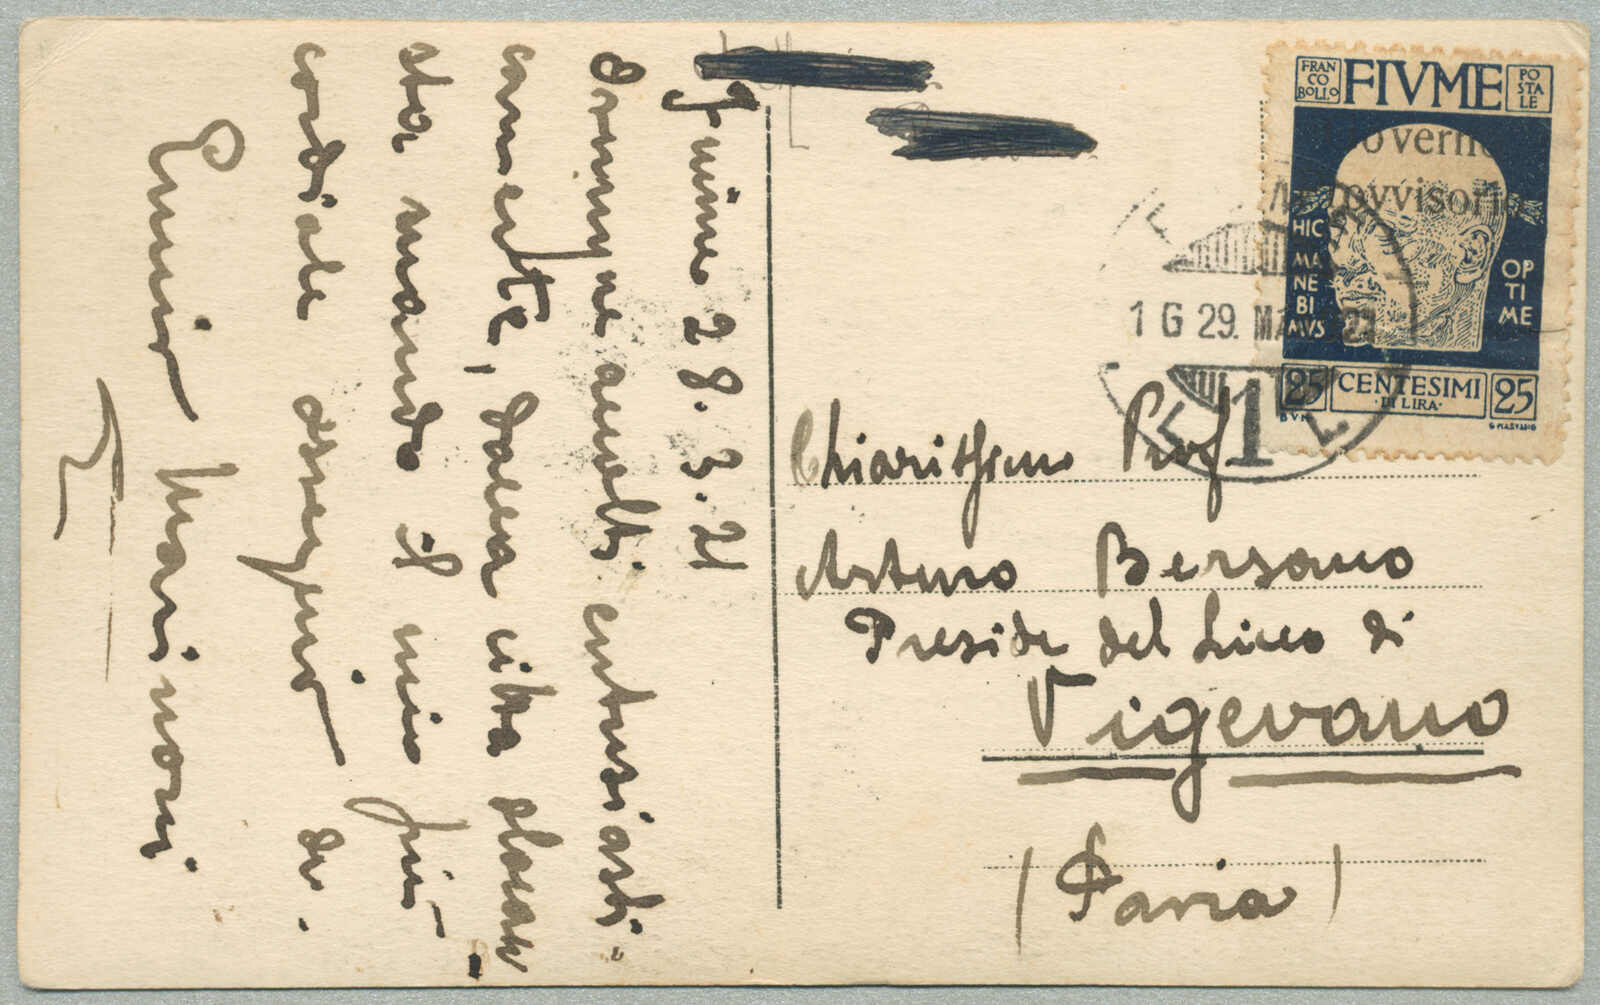 Fiume 28.3.21
Dovunque accolti entusiasti-
camente, dalla città olocau
sta mando il mio più
cordiale ossequio
Ennio Marimoni
FRAN
CO
BOLLO
FIVME
PO
STA
LE
Governo
Provvisorio
HIC
MA
NE
BI
MVS
OP
TI
ME
25
CENTESIMI
DI LIRA
25
1 G 29. MA 21
1
Chiarissimo Prof
Arturo Bersano
Preside del Liceo di
Vigevano
(Pavia)